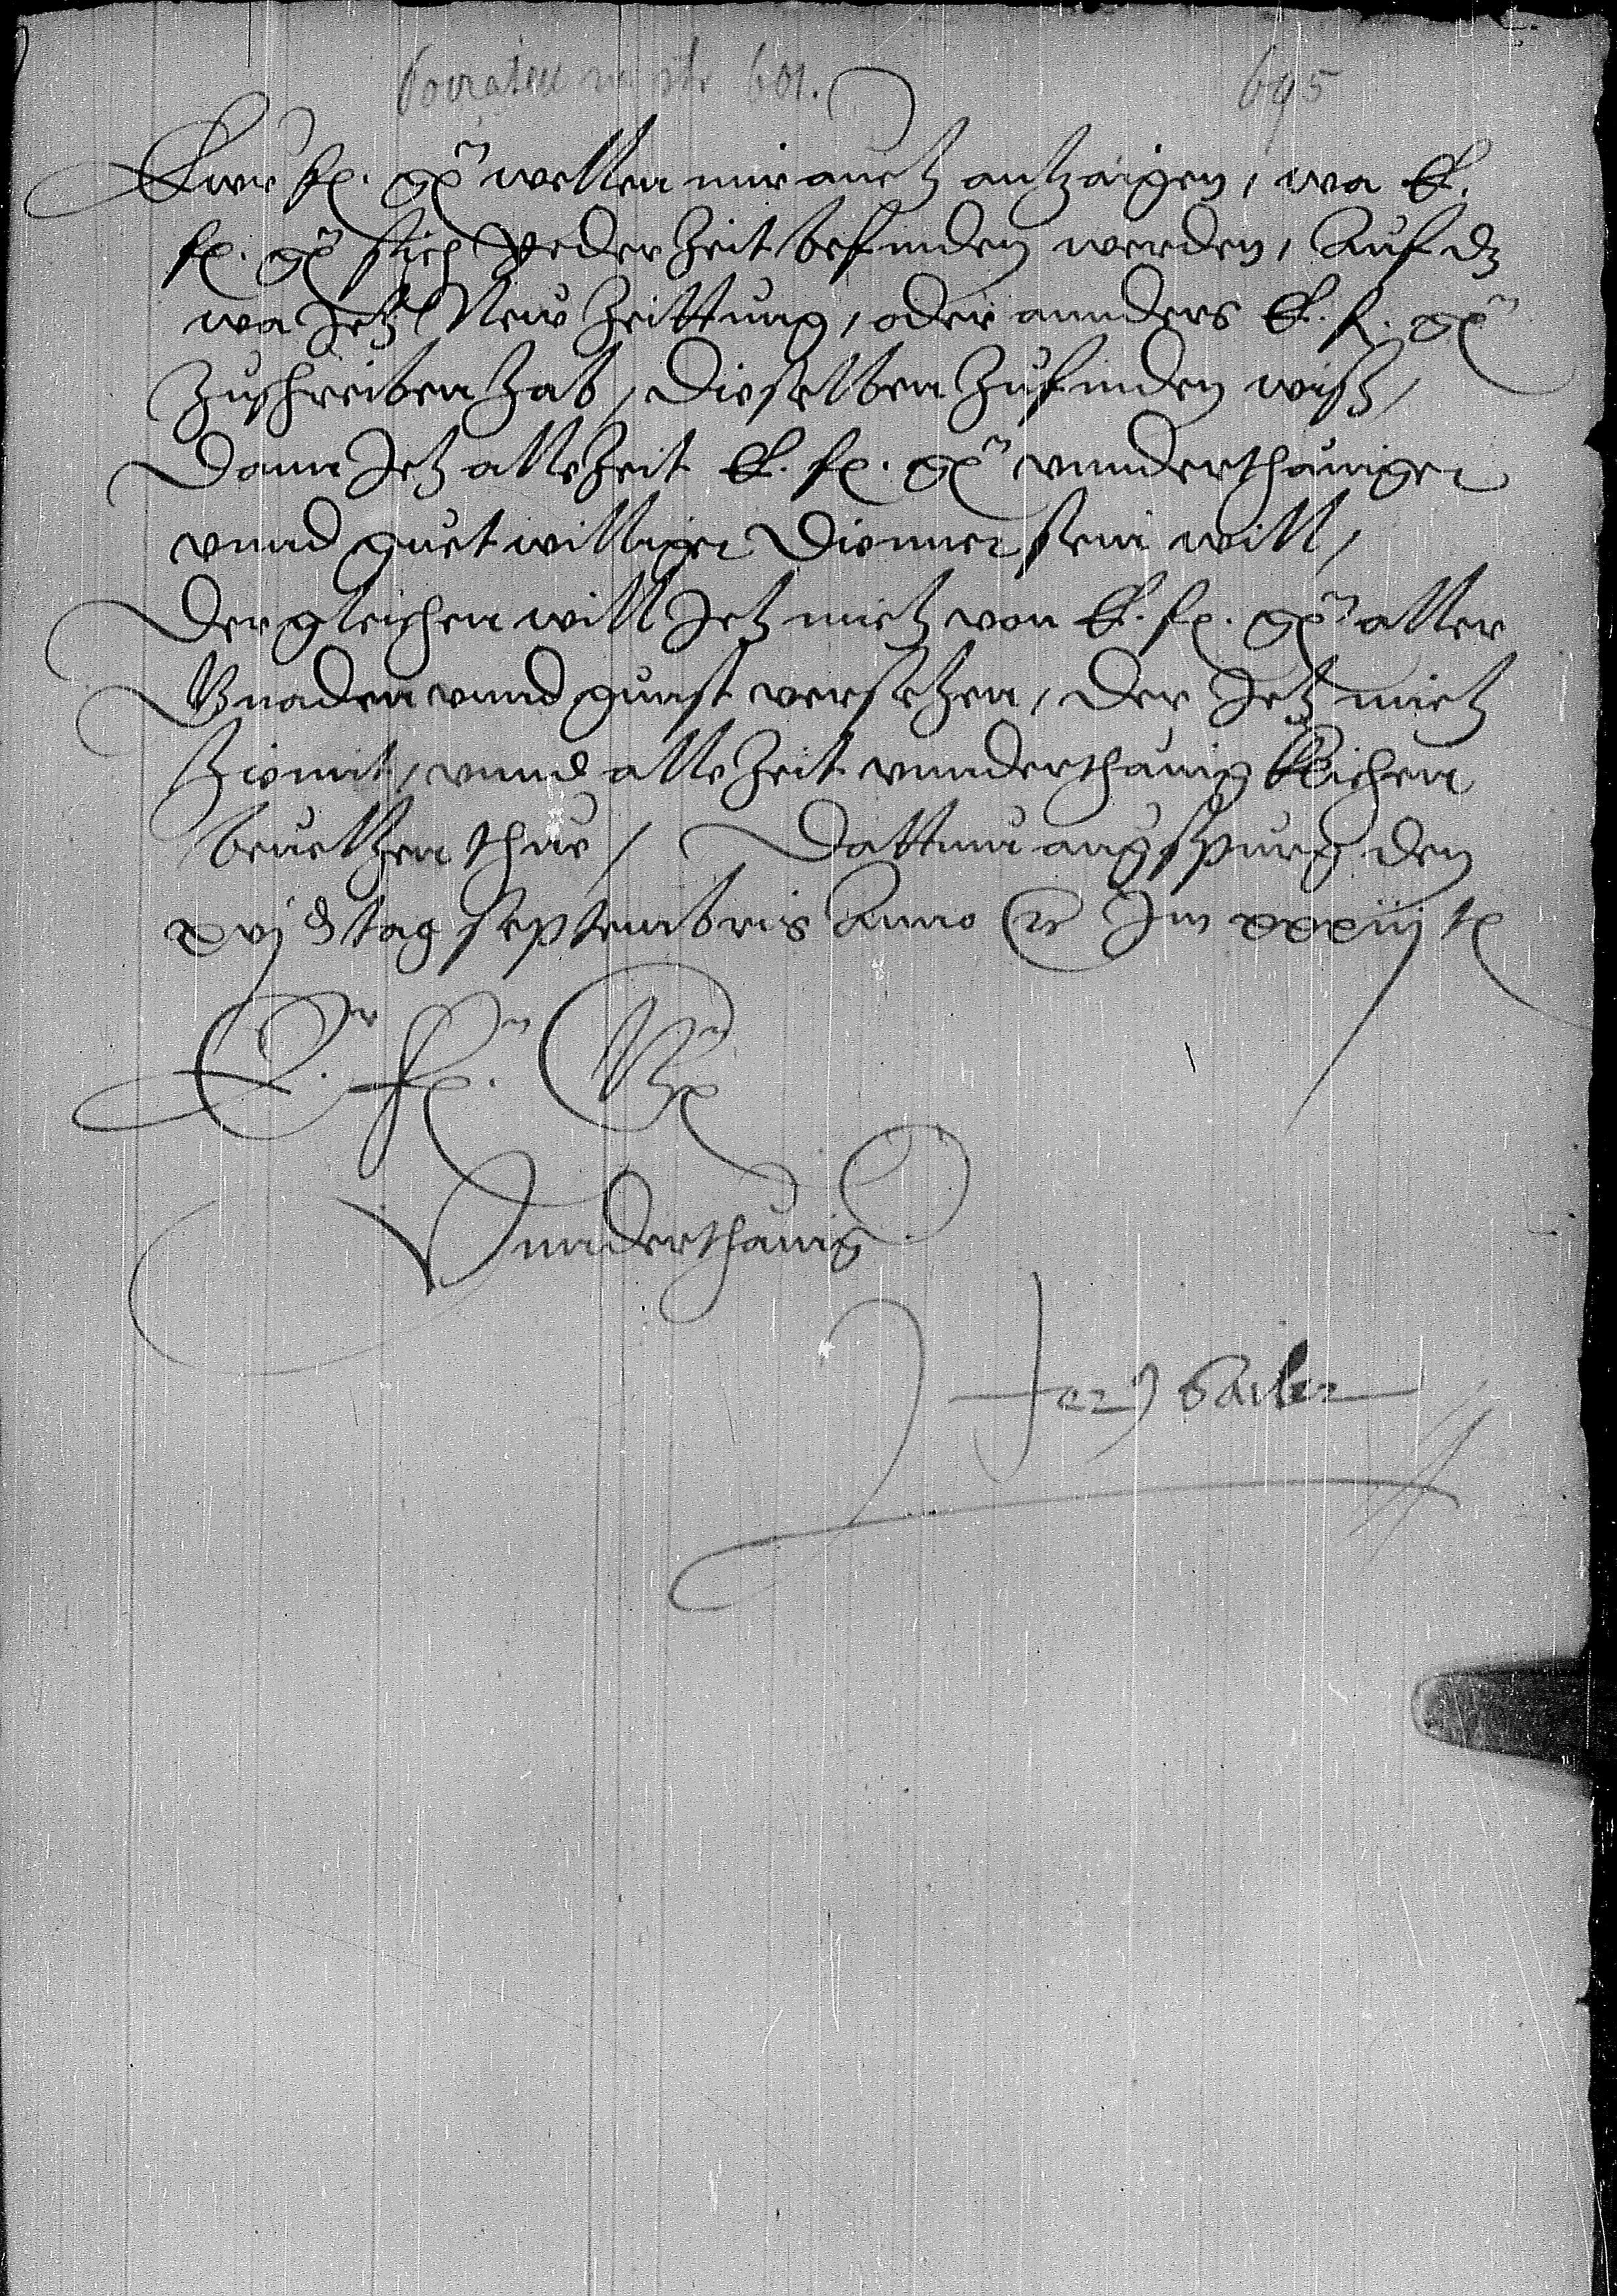 601. 695
Ewr fl. gn wellen mir auch antzaigen, wa E.
fl. gn sich yederzeit befinden werden, Auf dz
wa Ich New Zeittung, oder annders E. f. gn
zuschreiben hab, dieselben zufinden wiß,
Dann Ich allezeit E. fl. gn vnnderthäniger
vnnd guetwilliger Dienner sein will,
Dergleichen will Ich mich von E. fl. gn aller
Gnaden vnnd gunst versehen, der Ich mich
hiemit, vnnd allezeit vnnderthänigklichen
beuelhen thue, Dattum augspurg den
xvj tag septembris Anno Im xxxiiij
E. fl. Gn
Vnnderthänig
Jerg